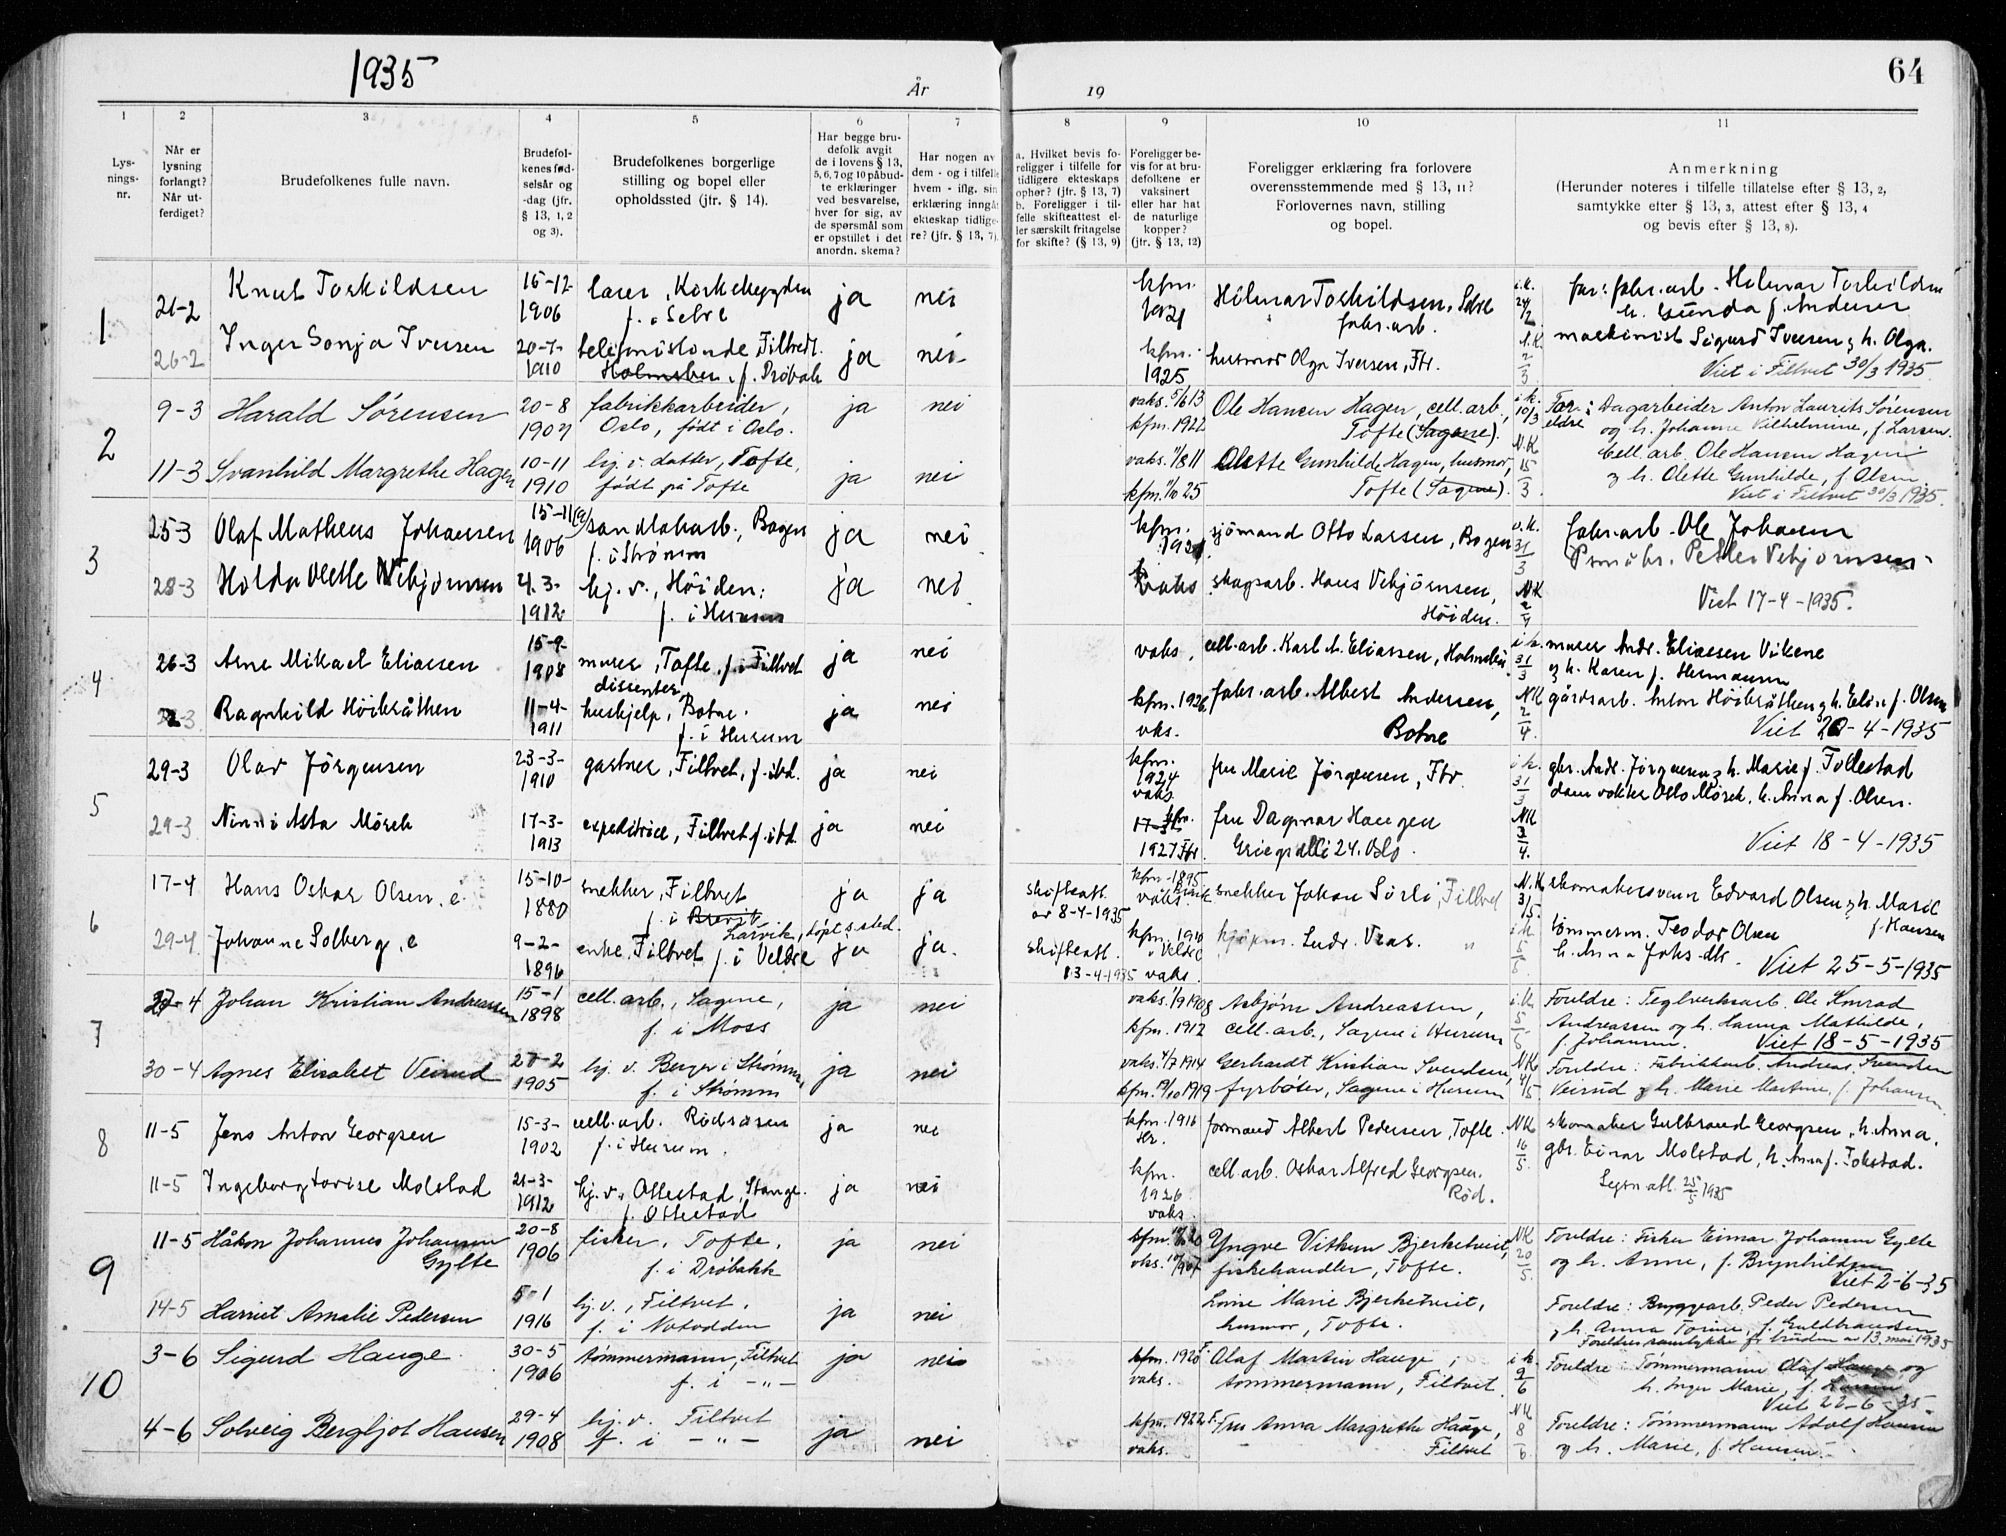 1935
År
19
64
1
2
3
4
5
6
7
8
9
10
11
Lys-
nings-
nr.
Når er
lysning
forlangt?
Når ut-
ferdiget?
Brudefolkenes fulle navn.
Brudefol-
kenes fød-
selsår og
-dag (jfr.
§ 13, 1, 2
og 3).
Brudefolkenes borgerlige
stilling og bopel eller
opholdssted (jfr. § 14).
Har begge bru-
defolk avgit
de i lovens § 13,
5, 6, 7 og 10 påbud-
te erklæringer
ved besvarelse,
hver for sig, av
de spørsmål som
er opstillet i det
anordn. skema?
Har nogen av
dem - og i tilfelle
hvem - iflg. sin
erklæring inngåt
ekteskap tidlige-
re? (jfr. § 13, 7).
a. Hvilket bevis fo-
religger i tilfelle for
tidligere ekteskaps
ophør? (jfr. § 13, 7)
b. Foreligger i til-
felle skifteattest el-
ler særskilt fritagelse
for skifte? (§ 13, 9)
Foreligger be-
vis for at bru-
defolkene er
vaksinert
eller har hat
de naturlige
kopper?
(jfr. § 13, 12)
Foreligger erklæring fra forlovere
overensstemmende med § 13, 11?
Forlovernes navn, stilling
og bopel.
Anmerkning
(Herunder noteres i tilfelle tillatelse efter § 13, 2,
samtykke efter § 13, 3, attest efter § 13, 4
og bevis efter § 13, 8).
1
21-2 Knut Torkildsen 15-12- 1906 ja nei kfm. 1921 Hilmar Torkildsen, Sætre fabr.arb. i.k. 24/2 far: fabr.arb. Hilmar Torkildsen
h. Gunda f. Andersen
26-2 Inger Sonja Iversen 20-7- 1910 Filtvedt. Holmsbu, f. Drøbak ja nei kfm. 1925 husmor Olga Iversen, Ftv. N.K. 2/3 maskinist Sigurd Iversen & h. Olga.
Viet i Filtvet 30/3 1935.
2
9-3 Harald Sørensen 20-8 1907 fabrikkarbeider, Oslo, født i Oslo. ja nei vaks. 5/6 13 kfm. 1922 Ole Hansen Hagen, cell. arb., Tofte (Sagene). i.k. 10/3 Foreldre: Dagarbeider Anton Laurits Sørensen
og h. Johanne Vilhelmine, f. Larsen.
11-3 Svanhild Margrethe Hagen 10-11 1910 hj. v. datter, Tofte, født på Tofte ja nei vaks. 1/8 11 kfm. 1/10 25 Olette Gunhilde Hagen, husmor, Tofte (Sagene). N.K 15/3 Cell. arb. Ole Hansen Hagen
og h. Olette Gunhilde, f. Olsen
Viet i Filtvet 30/3 1935.
3
25-3 Olaf Matheus Johansen 15-11 1906 sandtakarb., Bogen f. i Strømm ja nei kfm. 1921 sjømand Otto Larsen, Bogen v.k. 31/3 fabr.arb. Ole Johansen
28-3 Holda Olette Vebjørnsen 4-3- 1912 hj. v., Høiden: f. i Hurum ja nei vaks. skogsarb. Hans Vebjørnsen, Høiden. NK 2/4 Petter Vebjørnsen
Viet 17-4-1935.
4
26-3 Arne Mikael Eliassen 15-9- 1908 murer, Tofte, f. i Filtvet dissenter ja nei vaks. cell.arb. Karl A. Eliassen, Holmsbu i k. 31/3 murer Andr. Eliassen Vikene
& h. Karen f. Hermansen
Ragnhild Høibråthen 11-4- 1911 hushjelp, Botne. f. i Hurum ja nei kfm. 1926 vks. fabr.arb. Albert Andersen, Botne NK 2/4. gårdsarb. Anton Høibråthen & h. Elise f. Olsen
Viet 20-4-1935
5
29-3 Olav Jørgensen 23-3- 1910 gartner, Filtvet, f. ibd. ja nei kfm. 1924 vaks. fru Marie Jørgensen, Ftv. i k. 31/3 gbr. Andr. Jørgensen & h. Marie f. Tollestad
29-3 Ninni Asta Mörch 17-3- 1913 expeditrice, Filtvet f. ibd. ja nei kfm. 1927 Ftv. fru Dagmar Haugen Griegs allé 24. Oslo. NK 3/4. Otto Mörch, h. Anna f. Olsen.
Viet 18-4-1935
6
17-4 Hans Oskar Olsen. e. 15-10- 1880 snekker, Filtvet f. i Brevik Larvik, døpt s. sted. ja ja skifteatt. av 8-4-1935 kfm. 1895 vaks. snekker Johan Sørli, Filtvet N.K. 3/5. skomakersvenn Edvard Olsen & h. Marie f. Hansen
29-4 Johanne Solberg, e 9-2- 1896 enke, Filtvet f. i Veldre ja ja. skifteatt. 13-4-1935 kfm. 1910 i Veldre vaks. kjøpm. Ludv. Vras. „ i k. 5/5 tømmerm. Teodor Olsen
h. Anna Jahs. dtr.
Viet 25-5-1935
7
27-4 Johan Kristian Andreassen 15-1 1898 cell. arb., Sagene, f. i Moss ja nei vaks. 1/9 1908 kfm. 1912 Asbjørn Andreassen, cell. arb., Sagene i Hurum i k 5/5 Foreldre: Teglverksarb. Ole Konrad
Andreassen og h. Hanna Mathilde,
f. Johansen. Viet 18-5-1935
30-4 Agnes Elisabet Veirud 27-2 1905 hj. v. Berger i Strømm, f. i Strømm ja nei vaks. 4/7 1914 kfm. 12/10 1919 Gerhardt Kristian Svendsen, fyrbøter, Sagene i Hurum NK 4/5 Foreldre: Fabrikkarb. Andreas Svendsen
Veirud & h. Marie Martine, f. Johansen.
8
11-5 Jens Anton Georgsen 15-3- 1902 cell.arb. Rødsåsen f. i Hurum. ja nei kfm. 1916 Hr. formand Albert Pedersen, Tofte. NK 16/5. skomaker Gulbrand Georgsen, h. Anna.
11-5 Ingeborg Lovise Molstad 21-3- 1912 hj. v., Ottestad, Stange. f. Ottestad ja nei kfm. 1926 vaks. cell.arb. Oskar Alfred Georgsen. Rød. gbr. Einar Molstad, h. Anna f. Tokstad.
Lysn att. 25/5 1935
9
11-5 Håkon Johannes Johansen Gylte 20-8 1906 fisker, Tofte, f. i Drøbakk ja nei Yngve Vitkun Bjerketveit, fiskehandler, Tofte. NK 20/5. Foreldre: Fisker Einar Johansen Gylte
og h. Anne, f. Brynhildsen
Viet 2-6-35
14-5 Harriet Amalie Pedersen 5-1 1916 hj. v., Filtvet, f. i Notodden ja nei Lovise Marie Bjerketveit, husmor, Tofte. Foreldre: Bryggearb. Peder Pedersen
& h. Anna Torine, f. Guldbrandsen
Foreldres samtykke for bruden av 13. mai 1935
10
3-6 Sigurd Hauge 30-5 1906 tømmermann, Filtvet f. i -„- ja nei kfm. 1920 F. vaks. Olaf Martin Hauge, tømmermann, Filtvet. i k. 9/6 Foreldre: Tømmermann Olaf Hauge og
h. Inger Marie, f. Larsen
Viet 22-6-35.
4-6 Solveig Bergljot Hansen 29-4 1908 hj. v. Filtvet f. i -„- ja nei kfm. 1922 F. vaks. Fru Anna Margrethe Hauge, Filtvet NK 8/6 Foreldre: Tømmermann Adolf Hansen
og h. Marie, f. Hansen.